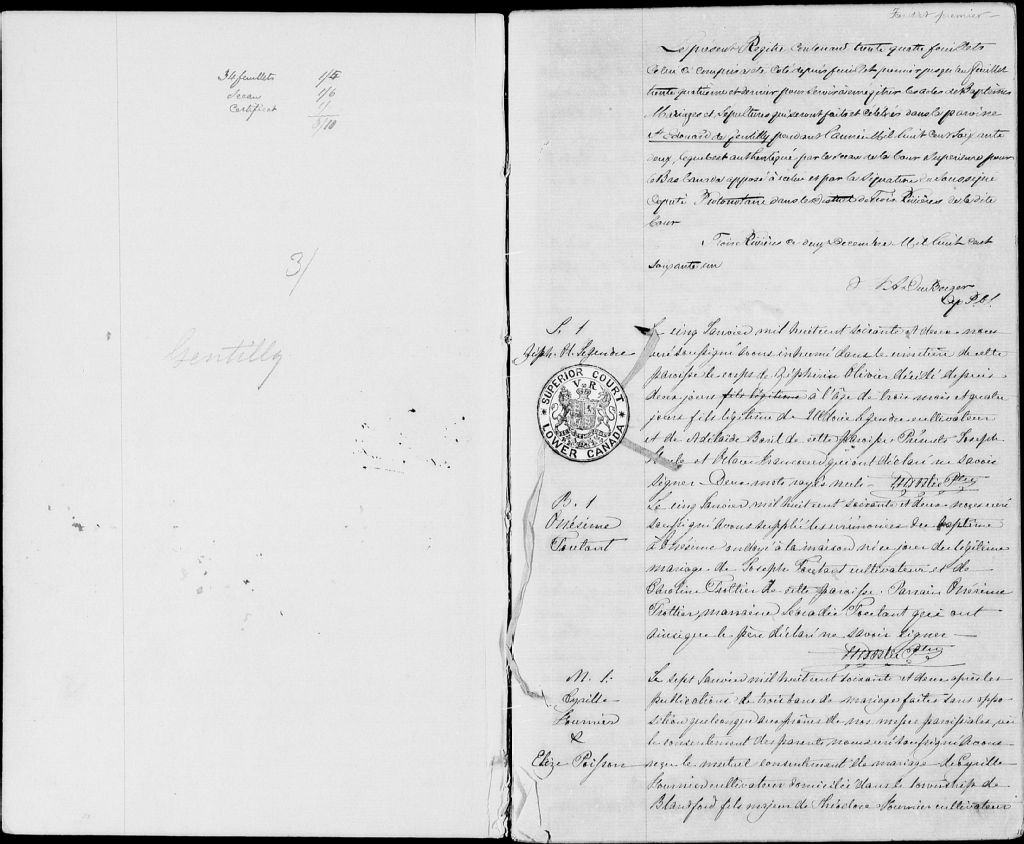 34 feuillets 1/4
Sceau 1/6
Certificat
5/10
3/
Gentilly
Feuillet premier
Le présent Régitre contenant trente quatre feuillets
celui ci compris a été coté depuis feuillet premier jusqu'au feuillet
trente quatrieme et dernier pour servir a enregistrer les actes de Baptêmes
Mariages et Sepultures qui seront faits et célébrés dans la paroisse
St Edouard de Gentilly pendant l'année Mil huit cent soixante
deux, lequel est authentiqué par le sceau de la Cour Superieure pour
le Bas Canada apposé à celui et par la signature du Soussigné
député Protonotaire dans le district de Trois Rivières de la dite
Cour
Trois Rivières ce deux Decembre Mil huit cent
soixante un
Dep P.C.S.
S. 1
Zéph. H. Legendre
SUPERIOR COURT
V R
LOWER CANADA
Le cinq Janvier mil huit cent soixante et deux nous
curé soussigné avons inhumé dans le cimetière de cette
paroisse le corps de Zéphirin Olivier décédé depuis
deux jours fils légitime à l'âge de trois mois et quatre
jours fils légitime de Legendre cultivateur
et de Adélaide Baril de cette paroisse. Présents Joseph
et qui ont déclaré ne savoir
signer - Deux mots rayés nuls - Ptre
B. 1
Onésime
Toutant
Le cinq Janvier mil huit cent soixante et deux nous curé
soussigné avons suppléé les cérémonies du baptême
à Onésime ondoyé à la maison né ce jour du légitime
mariage de Joseph Toutant cultivateur et de
Caroline Trottier de cette paroisse. Parrain Onésime
Trottier, marraine Léocadie Toutant qui ont
ainsi que le père déclaré ne savoir signer -
Ptre
M. 1.
Cyrille
Fournier
&
Elize Poisson
Le sept Janvier mil huit cent soixante et deux après les
publications de trois bans de mariage faites sans oppo-
sition quelconque aux prônes de nos messes paroissiales, vu
le consentement des parents nous curé soussigné avons
reçu le mutuel consentement de mariage de Cyrille
Fournier cultivateur domicilié dans le township de
Blandford fils majeur de Théodore Fournier cultivateur